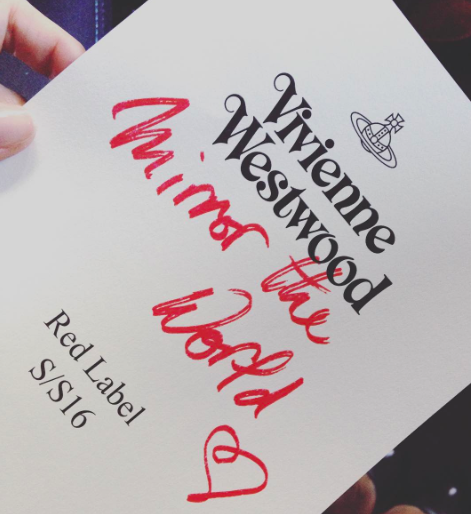 Vivienne
Westwood
Mirror the
World
Red Label
S/S16